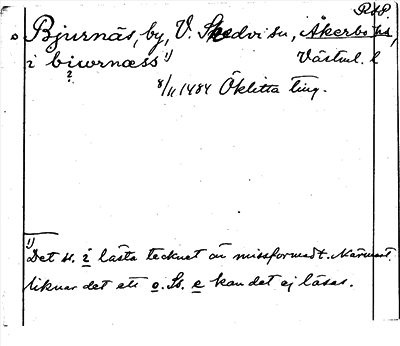 RAP.
Bjurnäs, by, V. Skedvi sn, Åkerbo hs,
i biwrnæss 1) Västml. l
?
8/11 1484 Öklitta ting.
1) Det s. i lästa tecknet är missformadt. Närmast
liknar det ett o. Ss. e kan det ej läsas.